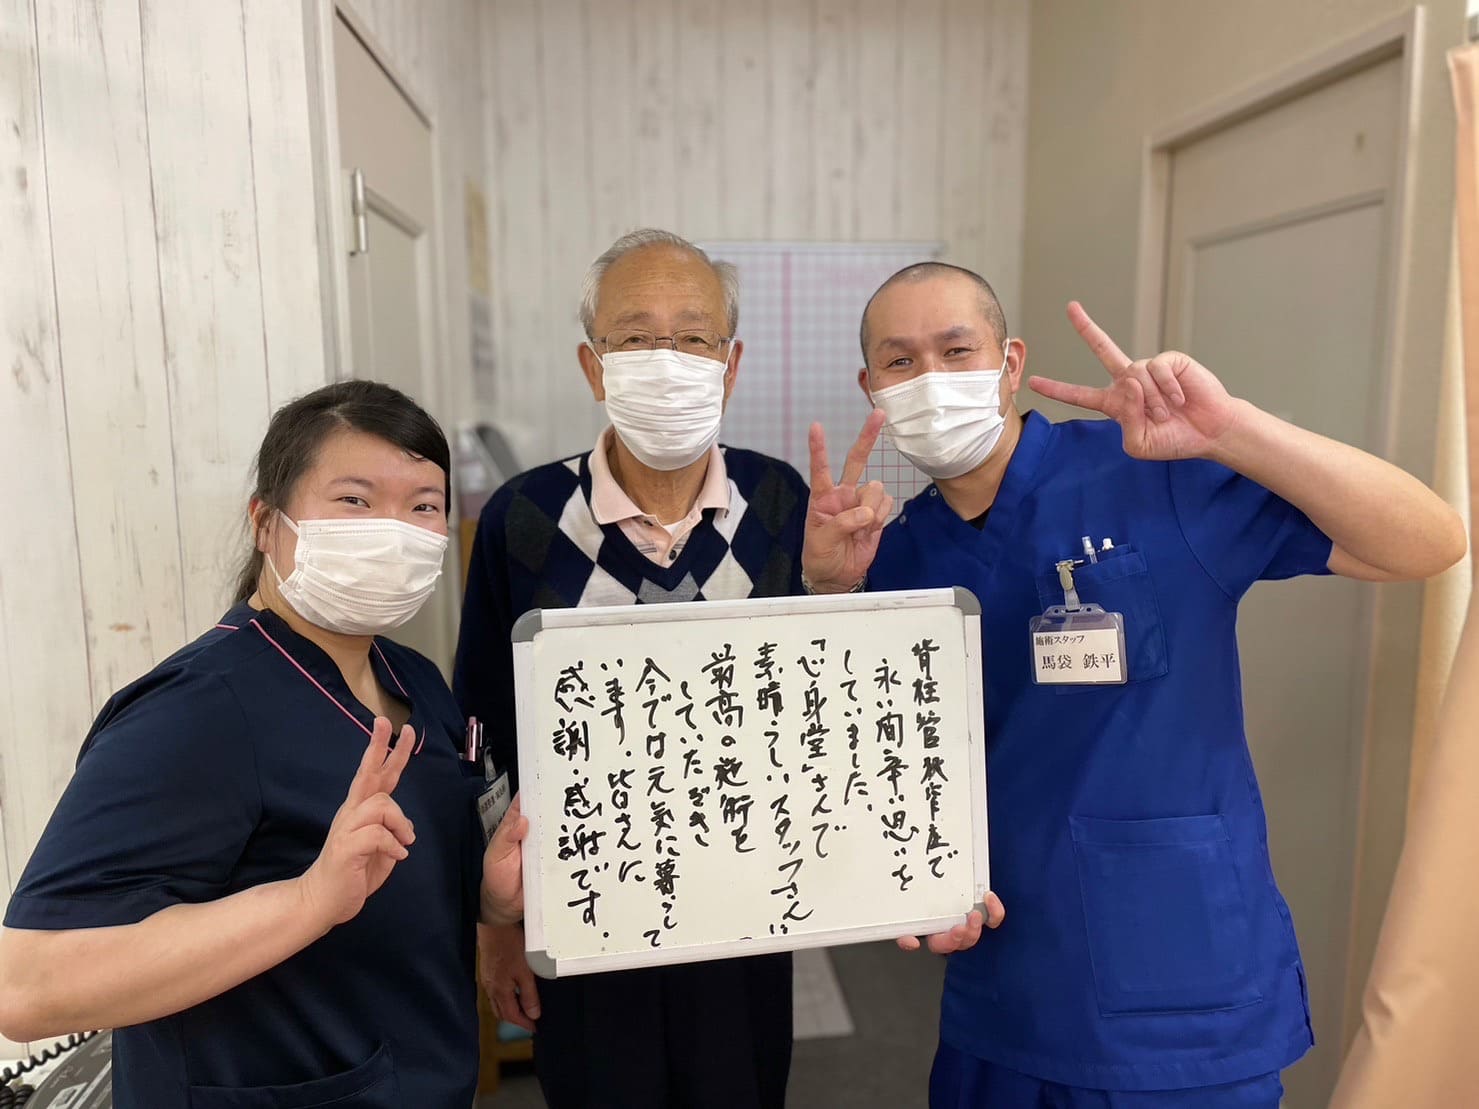 脊柱管狭窄症で
永い間辛い思いを
していました。
「心身堂」さんで
素晴らしいスタッフさんに
最高の施術を
していただき
今では元気に暮らして
います。皆さんに
感謝・感謝です。
施術スタッフ
馬袋 鉄平